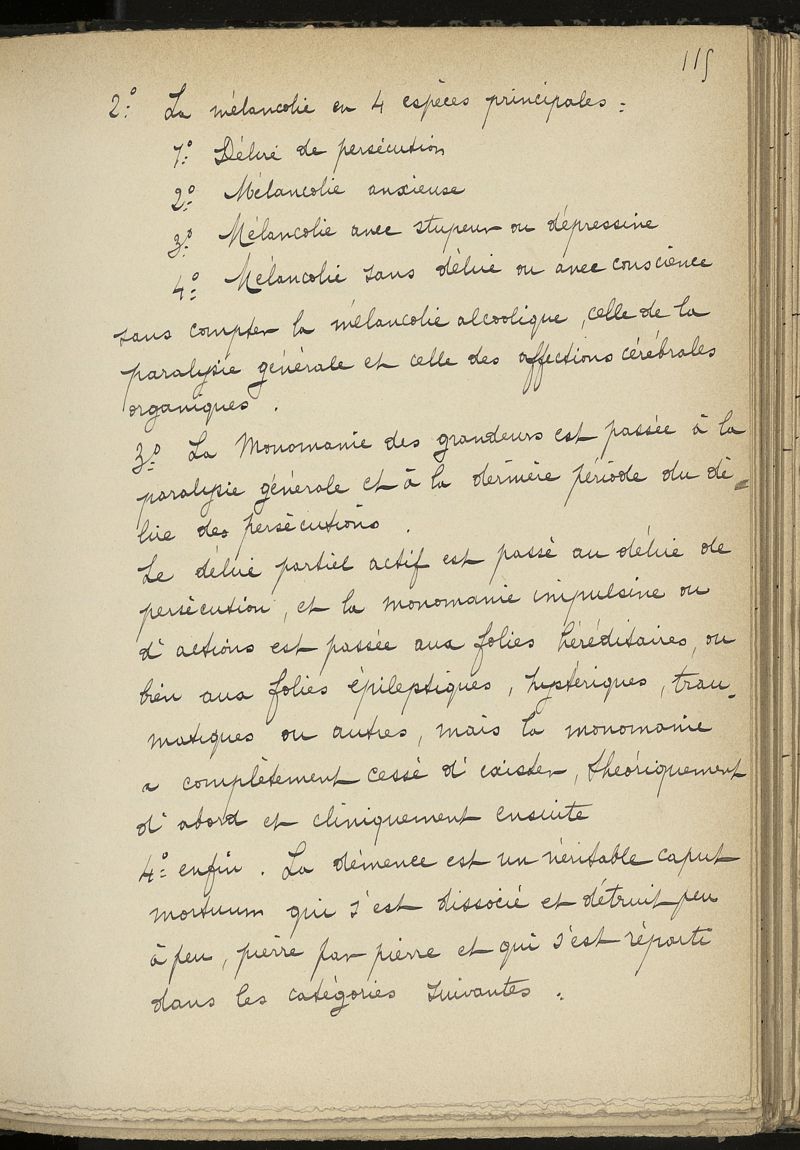 115
2º La mélancolie en 4 espèces principales :
1º Délire de persécution
2º Mélancolie anxieuse
3º Mélancolie avec stupeur ou dépressive
4º Mélancolie sans délire ou avec conscience
sans compter la mélancolie alcoolique, celle de la
paralysie générale et celle des affections cérébrales
organiques .
3º La Monomanie des grandeurs est passée à la
paralysie générale et à la dernière période du dé-
lire des persécutions .
Le délire partiel actif est passé au délire de
persécution, et la monomanie impulsive ou
d'actions est passée aux folies héréditaires, ou
bien aux folies épileptiques, hystériques, trau-
matiques ou autres, mais la monomanie
a complètement cessé d'exister, théoriquement
d'abord et cliniquement ensuite
4º enfin . La démence est un véritable caput
mortuum qui s'est dissocié et détruit peu
à peu, pierre par pierre et qui s'est réparti
dans les catégories suivantes :